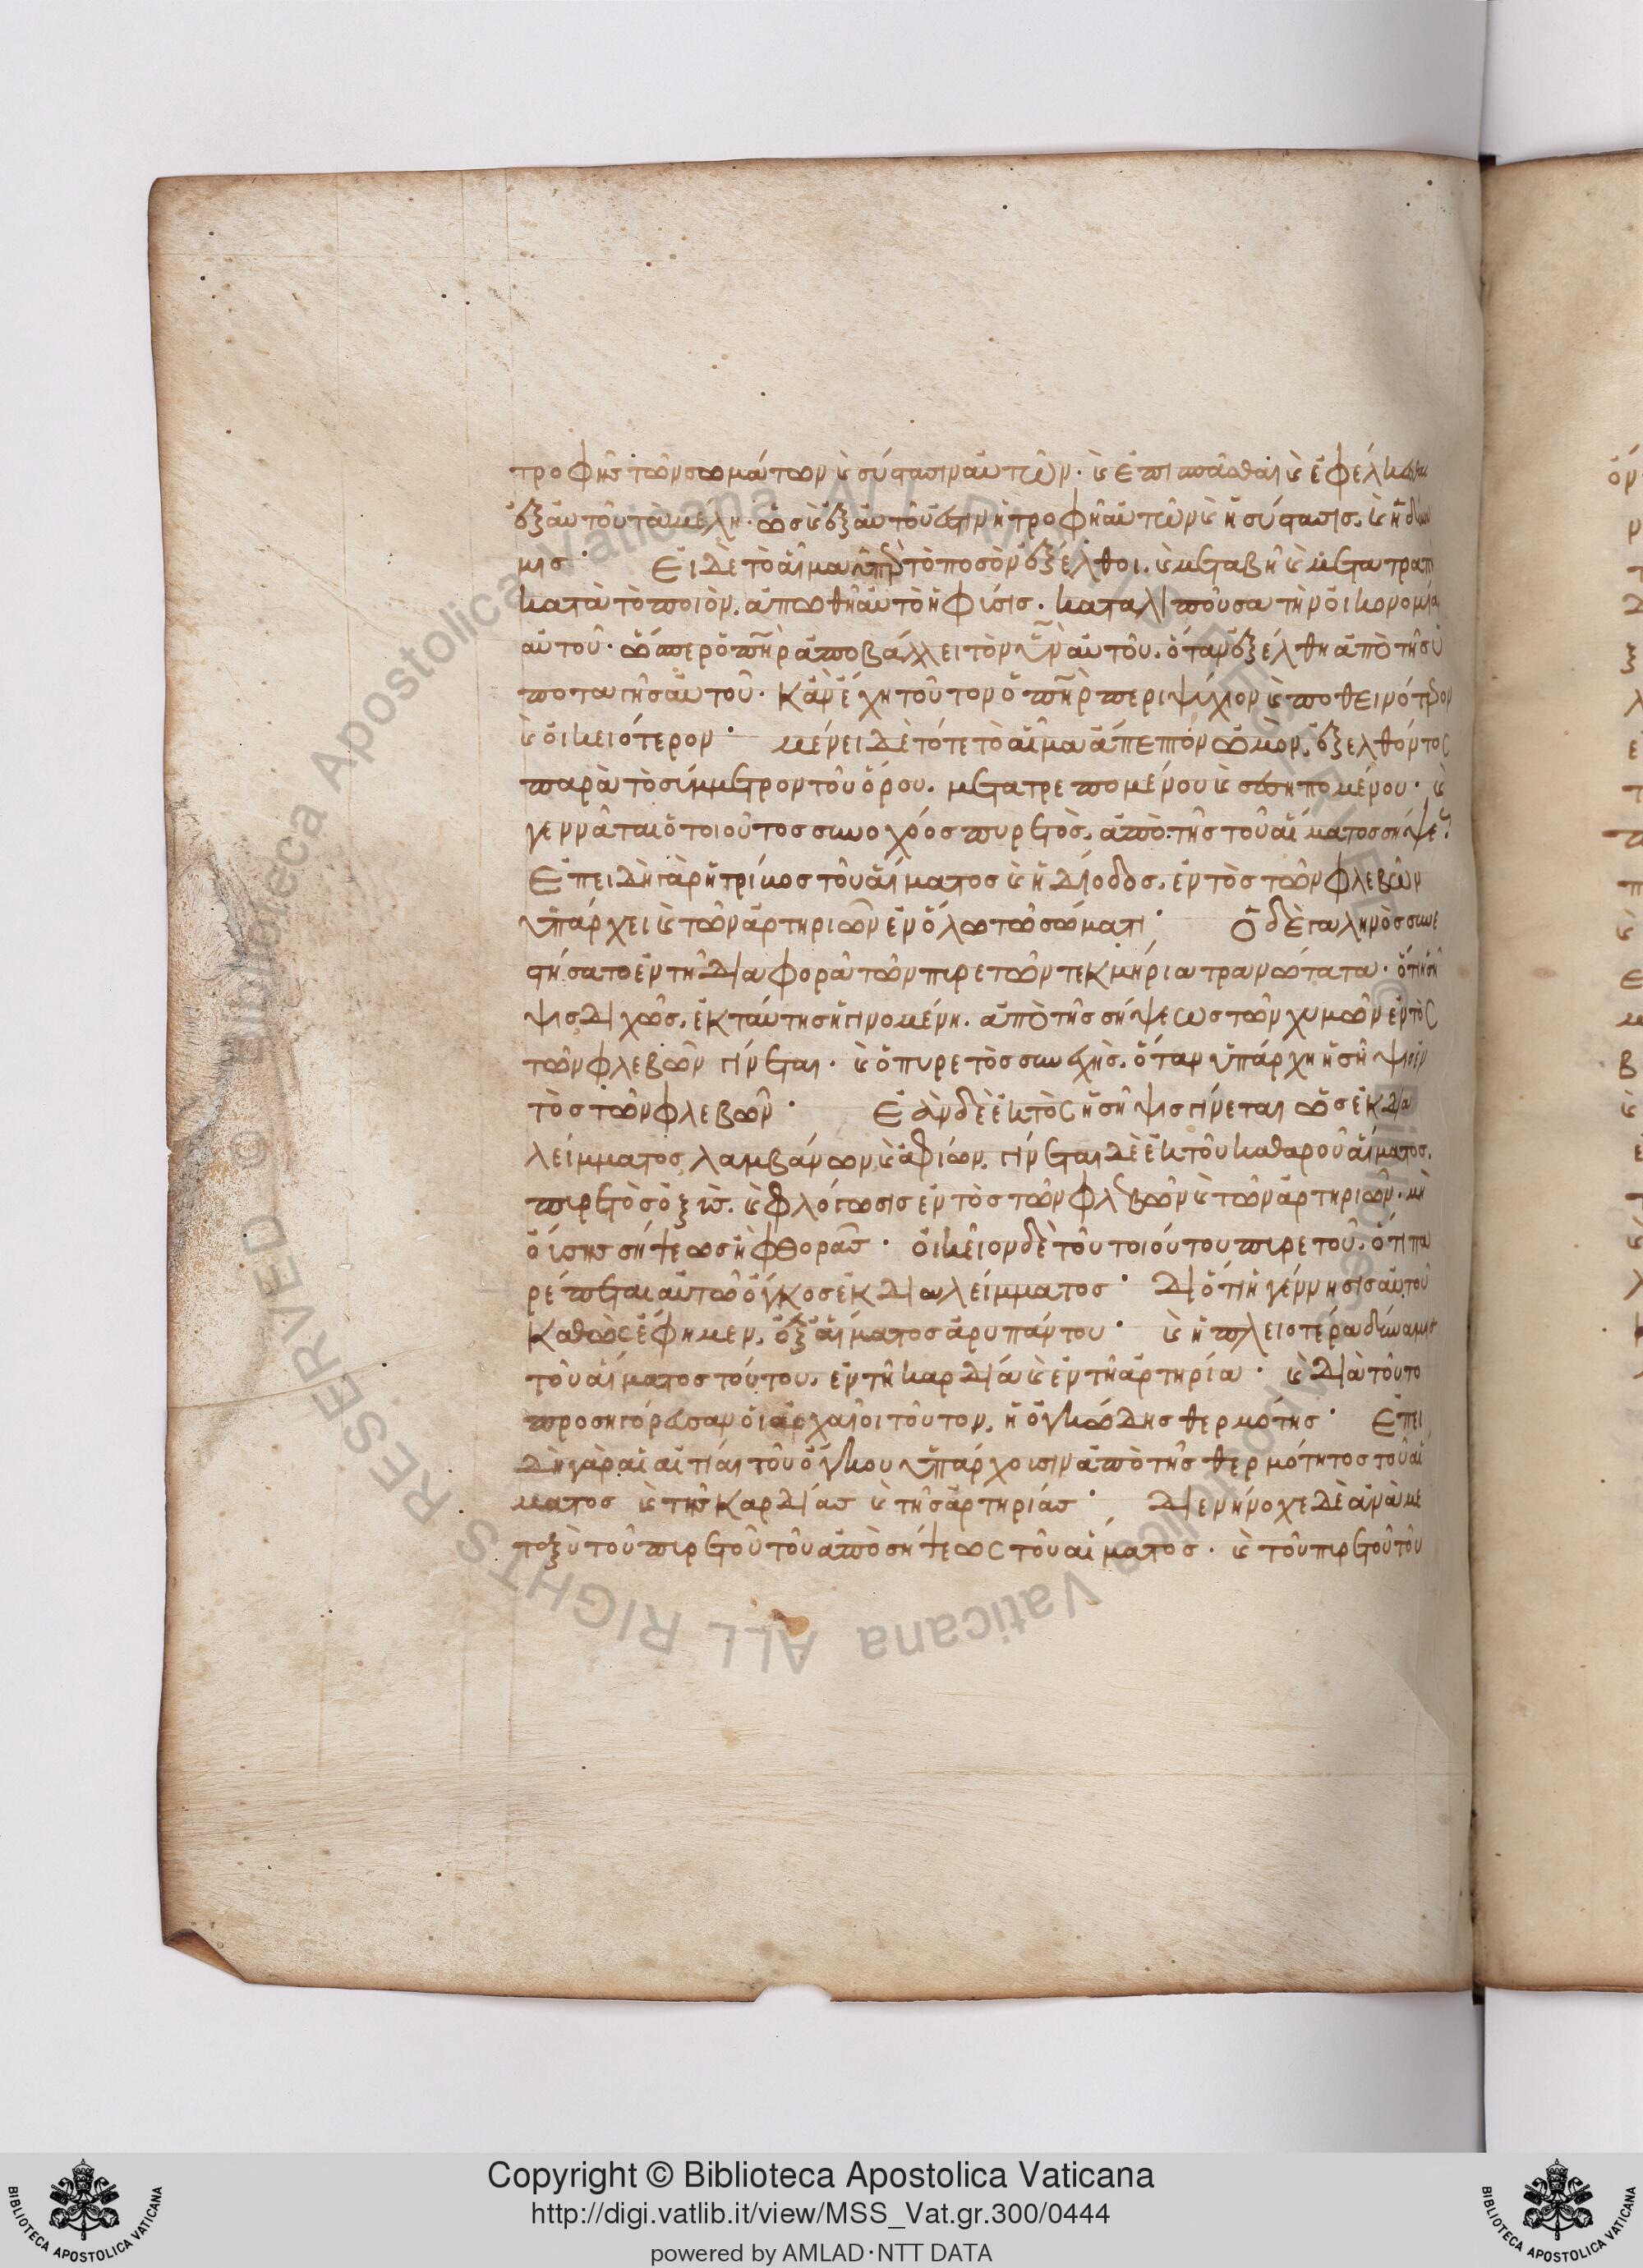 τροφῆς τῶν σωμάτων καὶ σύστασιν αὐτῶν· καὶ ἐπισπᾶσθαι καὶ ἐφέλκεσθαι
ἐξ αὐτοῦ τὰ μέλη· ὡς καὶ ἐξ αὐτοῦ ἐστιν ἡ τροφὴ αὐτῶν καὶ ἡ σύστασις, καὶ ἡ δύνα
μις· Εἰ δὲ τὸ αἷμα ὑπὲρ τὸ ποσὸν ἐξέλθοι, καὶ μεταβῇ καὶ μετατραπῇ
κατὰ τὸ ποιὸν, ἀπωθῇ αὐτὸ ἡ φύσις· καταλιποῦσα τὴν οἰκονομίαν
αὐτοῦ· ὥσπερ ὁ πηρ ἀποβάλλει τὸν υν αὐτοῦ, ὅταν ἐξέλθη ἀπὸ τῆς ὑ
ποταγῆς αὐτοῦ· Κἂν ἔχη τοῦτον ὁ πηρ περιψύχιον καὶ ποθεινότερον
καὶ οἰκειότερον· μένει δὲ τότε τὸ αἷμα ἄπεπτον ὠμὸν, ἐξελθόντος
παρὰ τὸ σύμμετρον τοῦ ὅρου, μετατρεπομένου καὶ σηπομένου· καὶ
γεννᾶται ὁ τοιοῦτος συνοχόος πυρετὸς, ἀπὸ τῆς τοῦ αἵματος σήψεως·
Ἐπειδὴ γὰρ ἡ τρίκος τοῦ αἵματος καὶ ἡ δίοδος, ἐντὸς τῶν φλεβῶν
ὑπάρχει καὶ τῶν ἀρτηριῶν ἐν ὅλω τῶ σώματι· Ὁ δὲ γαληνὸς συνε
στήσατο ἐν τῇ διαφορᾷ τῶν πυρετῶν τεκμήρια τρανώτατα· ὅτι ἡ σῆ
ψις διχῶς, ἐκ ταύτης ἡ γινομένη, ἀπὸ τῆς σήψεως τῶν χυμῶν ἐντὸς
τῶν φλεβῶν γίνεται· καὶ ὁ πυρετὸς συνεχὴς, ὅταν ὑπάρχη ἡ σῆψις ἐν
τὸς τῶν φλεβῶν· Ἐὰν δὲ ἐκτὸς ἡ σῆψις γίνεται ὡς ἐκ δια
λείμματος λαμβάνων καὶ ἀφιῶν, γίνεται δὲ ἐκ τοῦ καθαροῦ αἵματος,
πυρετὸς ὀξὺς, καὶ φλόγωσις ἐντὸς τῶν φλεβῶν καὶ τῶν ἀρτηριῶν, μὴ
οὔσης σήψεως ἢ φθορᾶς· οἰκεῖον δὲ τοῦ τοιούτου πυρετοῦ, ὅτι πα
ρέπεται αὐτῶ ὄγκος ἐκ διαλείμματος· διότι ἡ γέννησις αὐτοῦ
Καθὼς ἔφημεν, ἐξ αἵματος ἀρυπάντου· καὶ ἡ πλειοτέρα δύναμις
τοῦ αἵματος τούτου, ἐν τῇ καρδίᾳ καὶ ἐν τῇ ἀρτηρίᾳ· καὶ διὰ τοῦτο
προσηγόρευσαν οἱ ἀρχαῖοι τοῦτον, ἡ ὀγκώδης θερμότης· Ἐπει
δὴ γὰρ αἱ αἰτίαι τοῦ ὄγκου ὑπάρχουσιν ἀπὸ τῆς θερμότητος τοῦ αἵ
ματος καὶ τῆς Καρδίας καὶ τῆς ἀρτηρίας· διενήνοχε δὲ ἀνὰ με
ταξὺ τοῦ πυρετοῦ τοῦ ἀπὸ σήψεως τοῦ αἵματος· καὶ τοῦ πυρετοῦ τοῦ
Copyright © Biblioteca Apostolica Vaticana
http://digi.vatlib.it/view/MSS_Vat.gr.300/0444
powered by AMLAD·NTT DATA